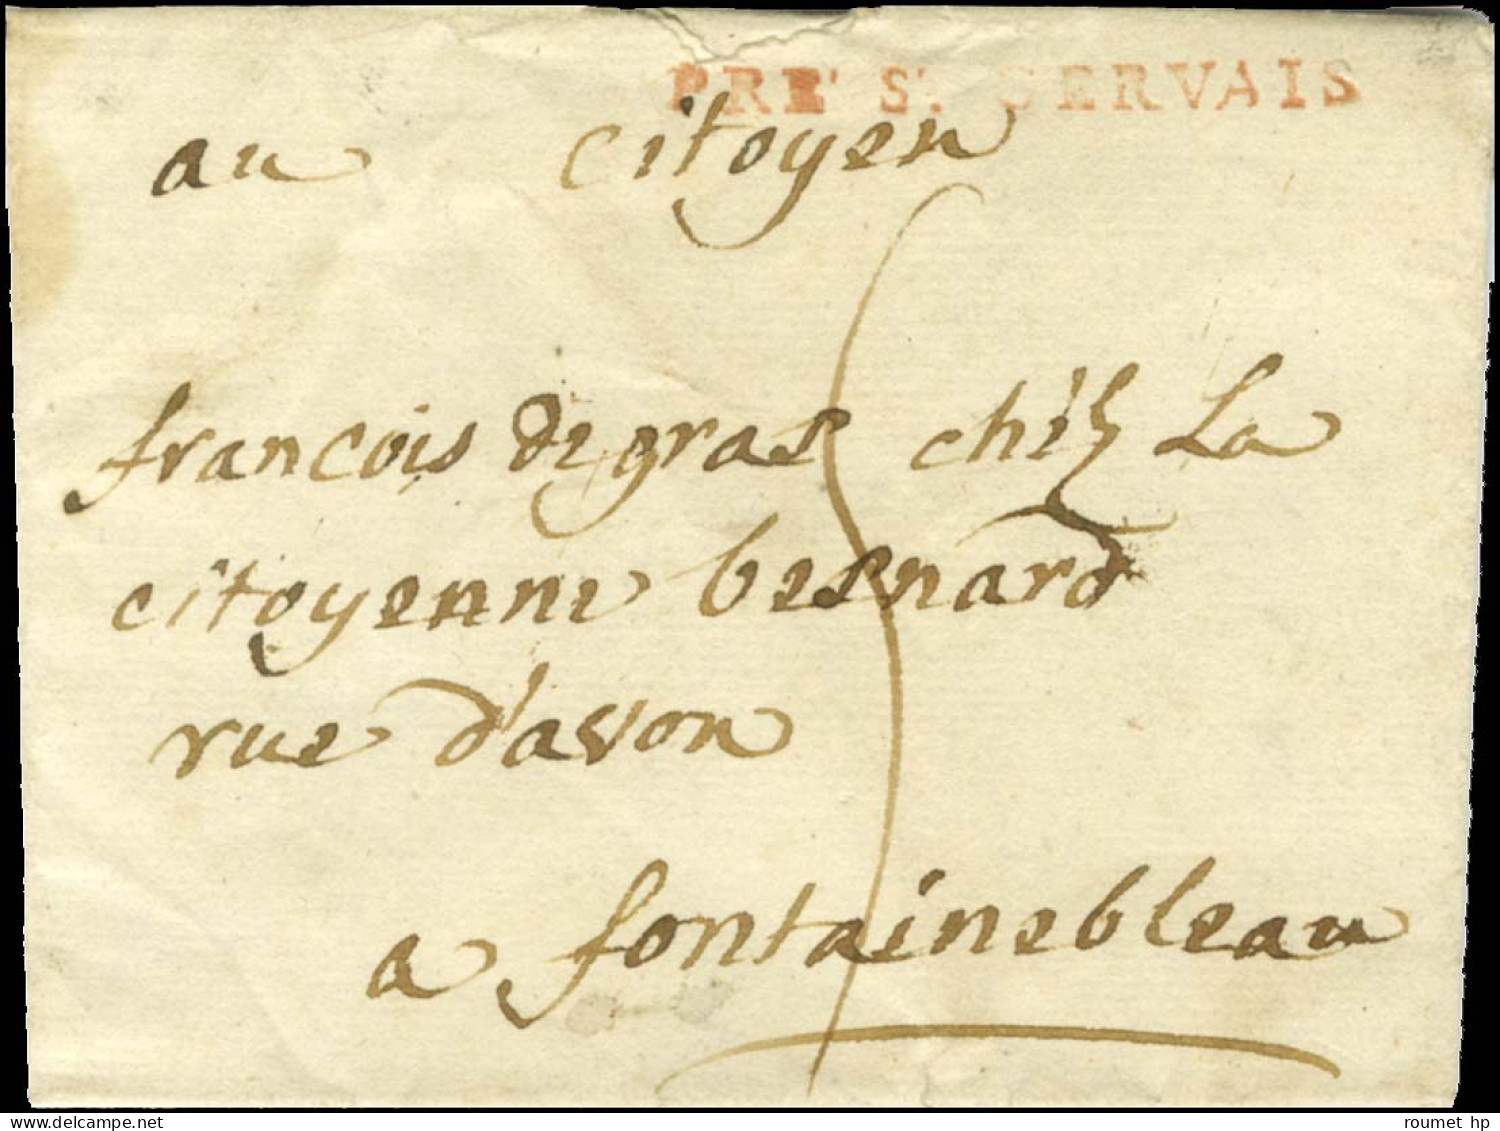 PRE' St. GERVAIS
au citoyen
francois degras chez La
citoyenne besnard
rue d'avon
a fontainebleau
www.delcampe.net
roumet hp